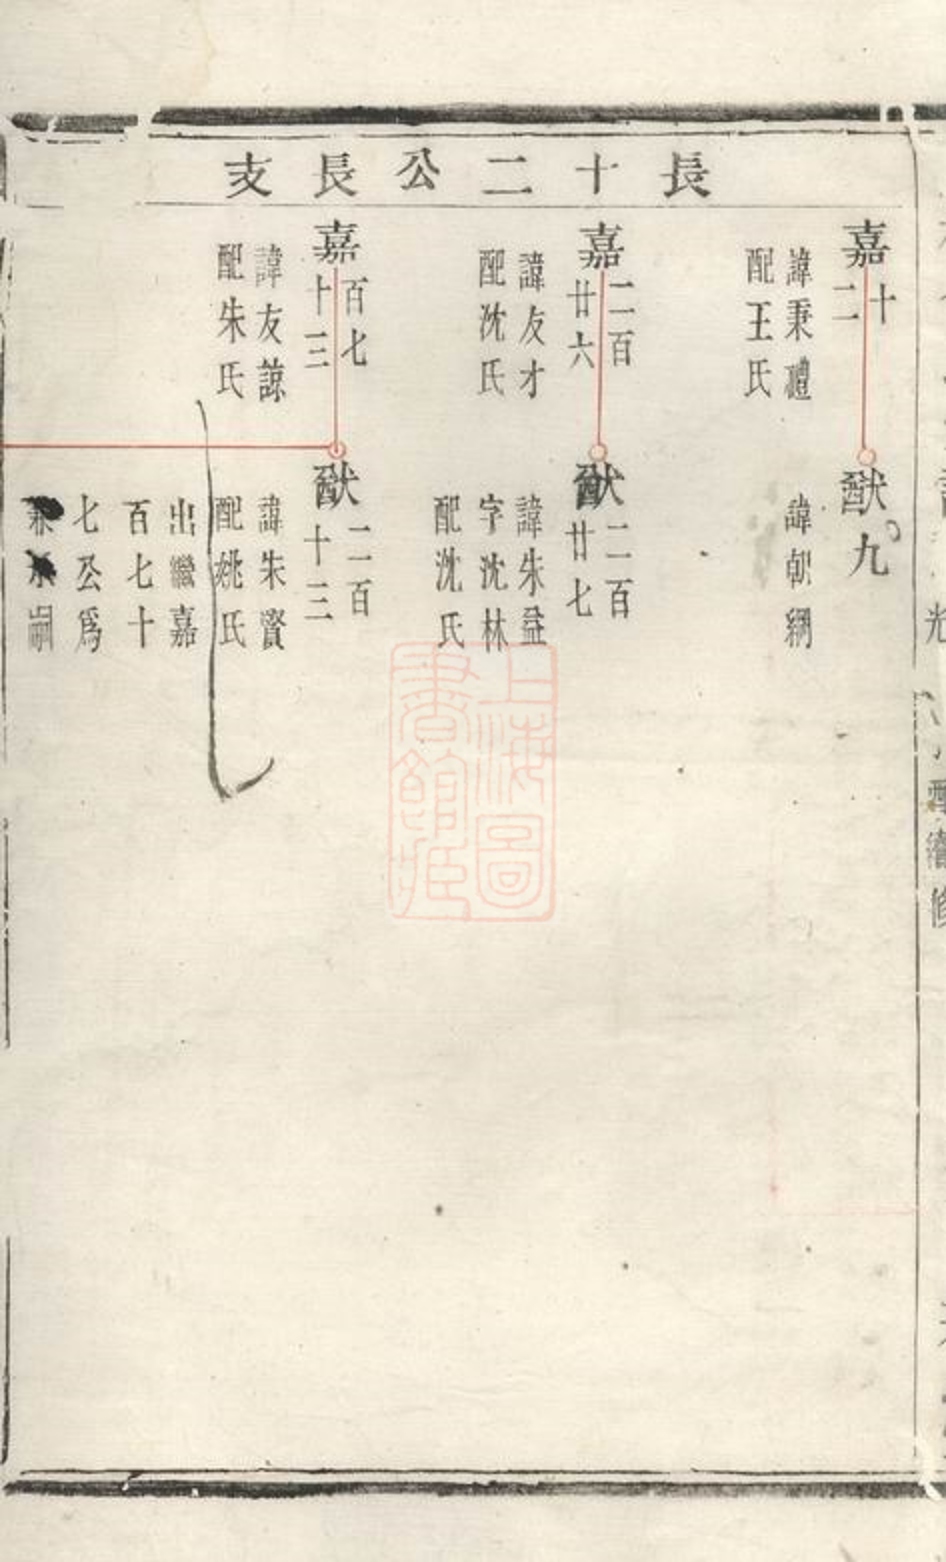 長十二公長支
嘉十二
諱秉禮
配王氏
猷九
諱朝綱
嘉二百廿六
諱友才
配沈氏
猷二百廿七
諱朱益
字沈林
配沈氏
嘉百七十三
諱友諒
配朱氏
猷二百十三
諱朱賢
配姚氏
出繼嘉
百七十
七公爲
嗣
上海圖
書館藏